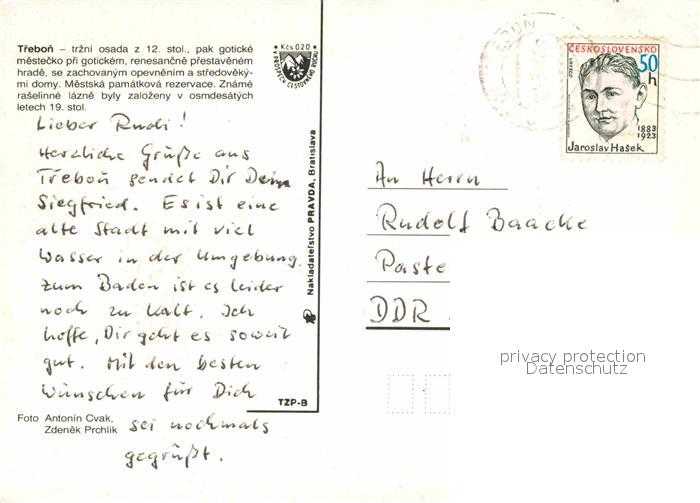 Třeboň – tržní osada z 12. stol., pak gotické
městečko při gotickém, renesančně přestavěném
hradě, se zachovaným opevněním a středověký-
mi domy. Městská památková rezervace. Známé
rašelinné lázně byly založeny v osmdesátých
letech 19. stol.
Kčs 020
V PROSPĚCH CESTOVNÉHO RUCHU
Lieber Rudi!
Herzliche Grüße aus
Třeboň sendet Dir Dein
Siegfried. Es ist eine
alte Stadt mit viel
Wasser in der Umgebung.
Zum Baden ist es leider
noch zu kalt. Ich
hoffe, Dir geht es soweit
gut. Mit den besten
Wünschen für Dich
sei nochmals
gegrüßt.
Foto Antonín Cvak,
Zdeněk Prchlík
Nakladateľstvo PRAVDA, Bratislava
TZP-B
ČESKOSLOVENSKO
50
h
1883
1923
Jaroslav Hašek
An Herrn
Rudolf Baacke
Paste
DDR
privacy protection
Datenschutz